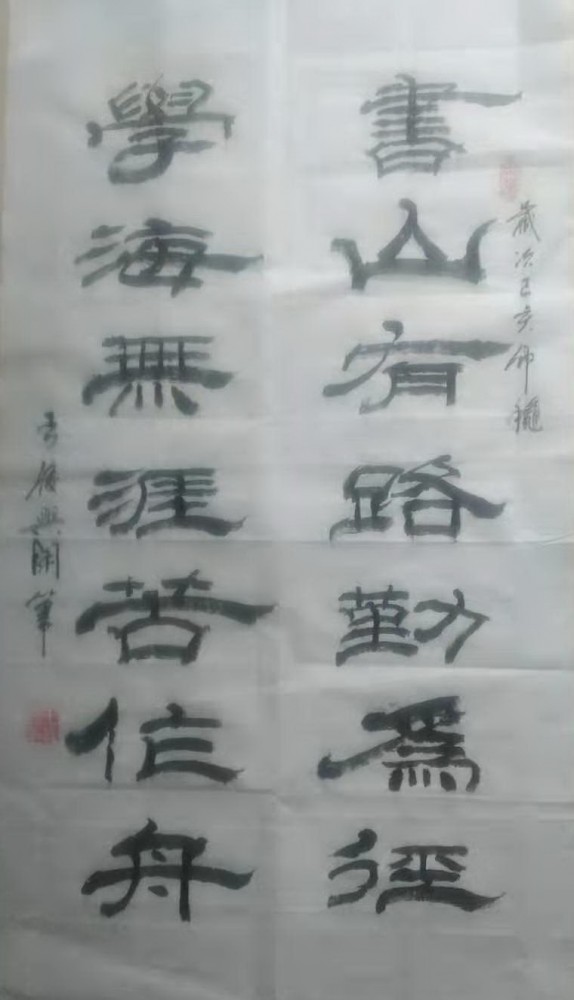 書山有路勤為徑
歲次己亥仲
學海無涯苦作舟
興開筆